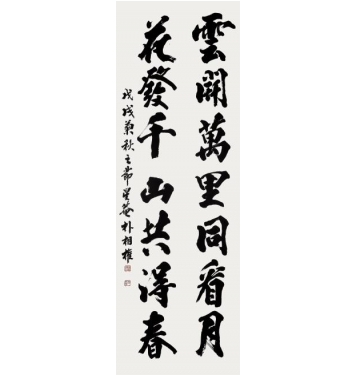 雲開萬里同看月
花發千山共得春
戊戌菊秋之節星菴朴相雄